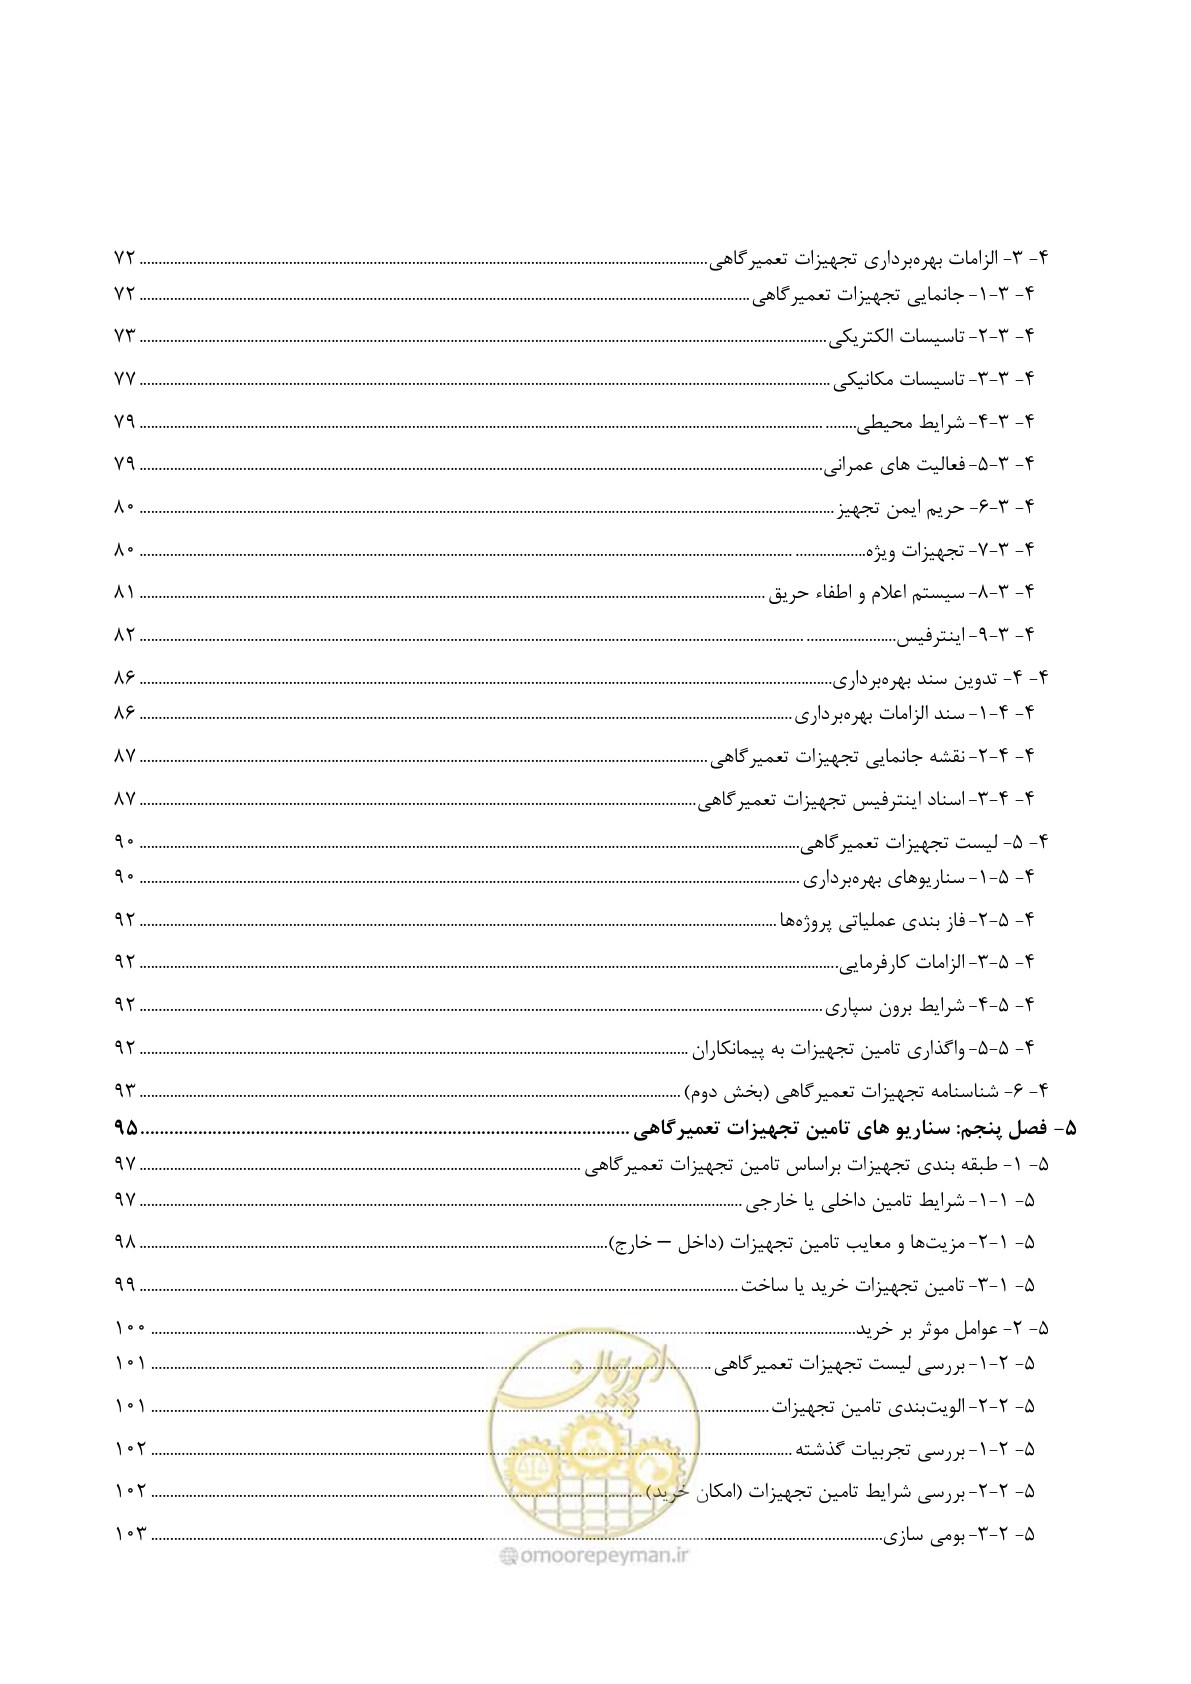 ۴- ۳- الزامات بهره‌برداری تجهیزات تعمیرگاهی ........ ۷۲
۴- ۳-۱- جانمایی تجهیزات تعمیرگاهی ........ ۷۲
۴- ۳-۲- تاسیسات الکتریکی ........ ۷۳
۴- ۳-۳- تاسیسات مکانیکی ........ ۷۷
۴- ۳-۴- شرایط محیطی ........ ۷۹
۴- ۳-۵- فعالیت های عمرانی ........ ۷۹
۴- ۳-۶- حریم ایمن تجهیز ........ ۸۰
۴- ۳-۷- تجهیزات ویژه ........ ۸۰
۴- ۳-۸- سیستم اعلام و اطفاء حریق ........ ۸۱
۴- ۳-۹- اینترفیس ........ ۸۲
۴- ۴- تدوین سند بهره‌برداری ........ ۸۶
۴- ۴-۱- سند الزامات بهره‌برداری ........ ۸۶
۴- ۴-۲- نقشه جانمایی تجهیزات تعمیرگاهی ........ ۸۷
۴- ۴-۳- اسناد اینترفیس تجهیزات تعمیرگاهی ........ ۸۷
۴- ۵- لیست تجهیزات تعمیرگاهی ........ ۹۰
۴- ۵-۱- سناریوهای بهره‌برداری ........ ۹۰
۴- ۵-۲- فاز بندی عملیاتی پروژه‌ها ........ ۹۲
۴- ۵-۳- الزامات کارفرمایی ........ ۹۲
۴- ۵-۴- شرایط برون سپاری ........ ۹۲
۴- ۵-۵- واگذاری تامین تجهیزات به پیمانکاران ........ ۹۲
۴- ۶- شناسنامه تجهیزات تعمیرگاهی (بخش دوم) ........ ۹۳
۵- فصل پنجم: سناریو های تامین تجهیزات تعمیرگاهی ........ ۹۵
۵- ۱- طبقه بندی تجهیزات براساس تامین تجهیزات تعمیرگاهی ........ ۹۷
۵- ۱-۱- شرایط تامین داخلی یا خارجی ........ ۹۷
۵- ۱-۲- مزیت‌ها و معایب تامین تجهیزات (داخل – خارج) ........ ۹۸
۵- ۱-۳- تامین تجهیزات خرید یا ساخت ........ ۹۹
۵- ۲- عوامل موثر بر خرید ........ ۱۰۰
۵- ۲-۱- بررسی لیست تجهیزات تعمیرگاهی ........ ۱۰۱
۵- ۲-۲- الویت‌بندی تامین تجهیزات ........ ۱۰۱
۵- ۲-۱- بررسی تجربیات گذشته ........ ۱۰۲
۵- ۲-۲- بررسی شرایط تامین تجهیزات (امکان خرید) ........ ۱۰۲
۵- ۲-۳- بومی سازی ........ ۱۰۳
امور پیمان
@omoorepeyman.ir